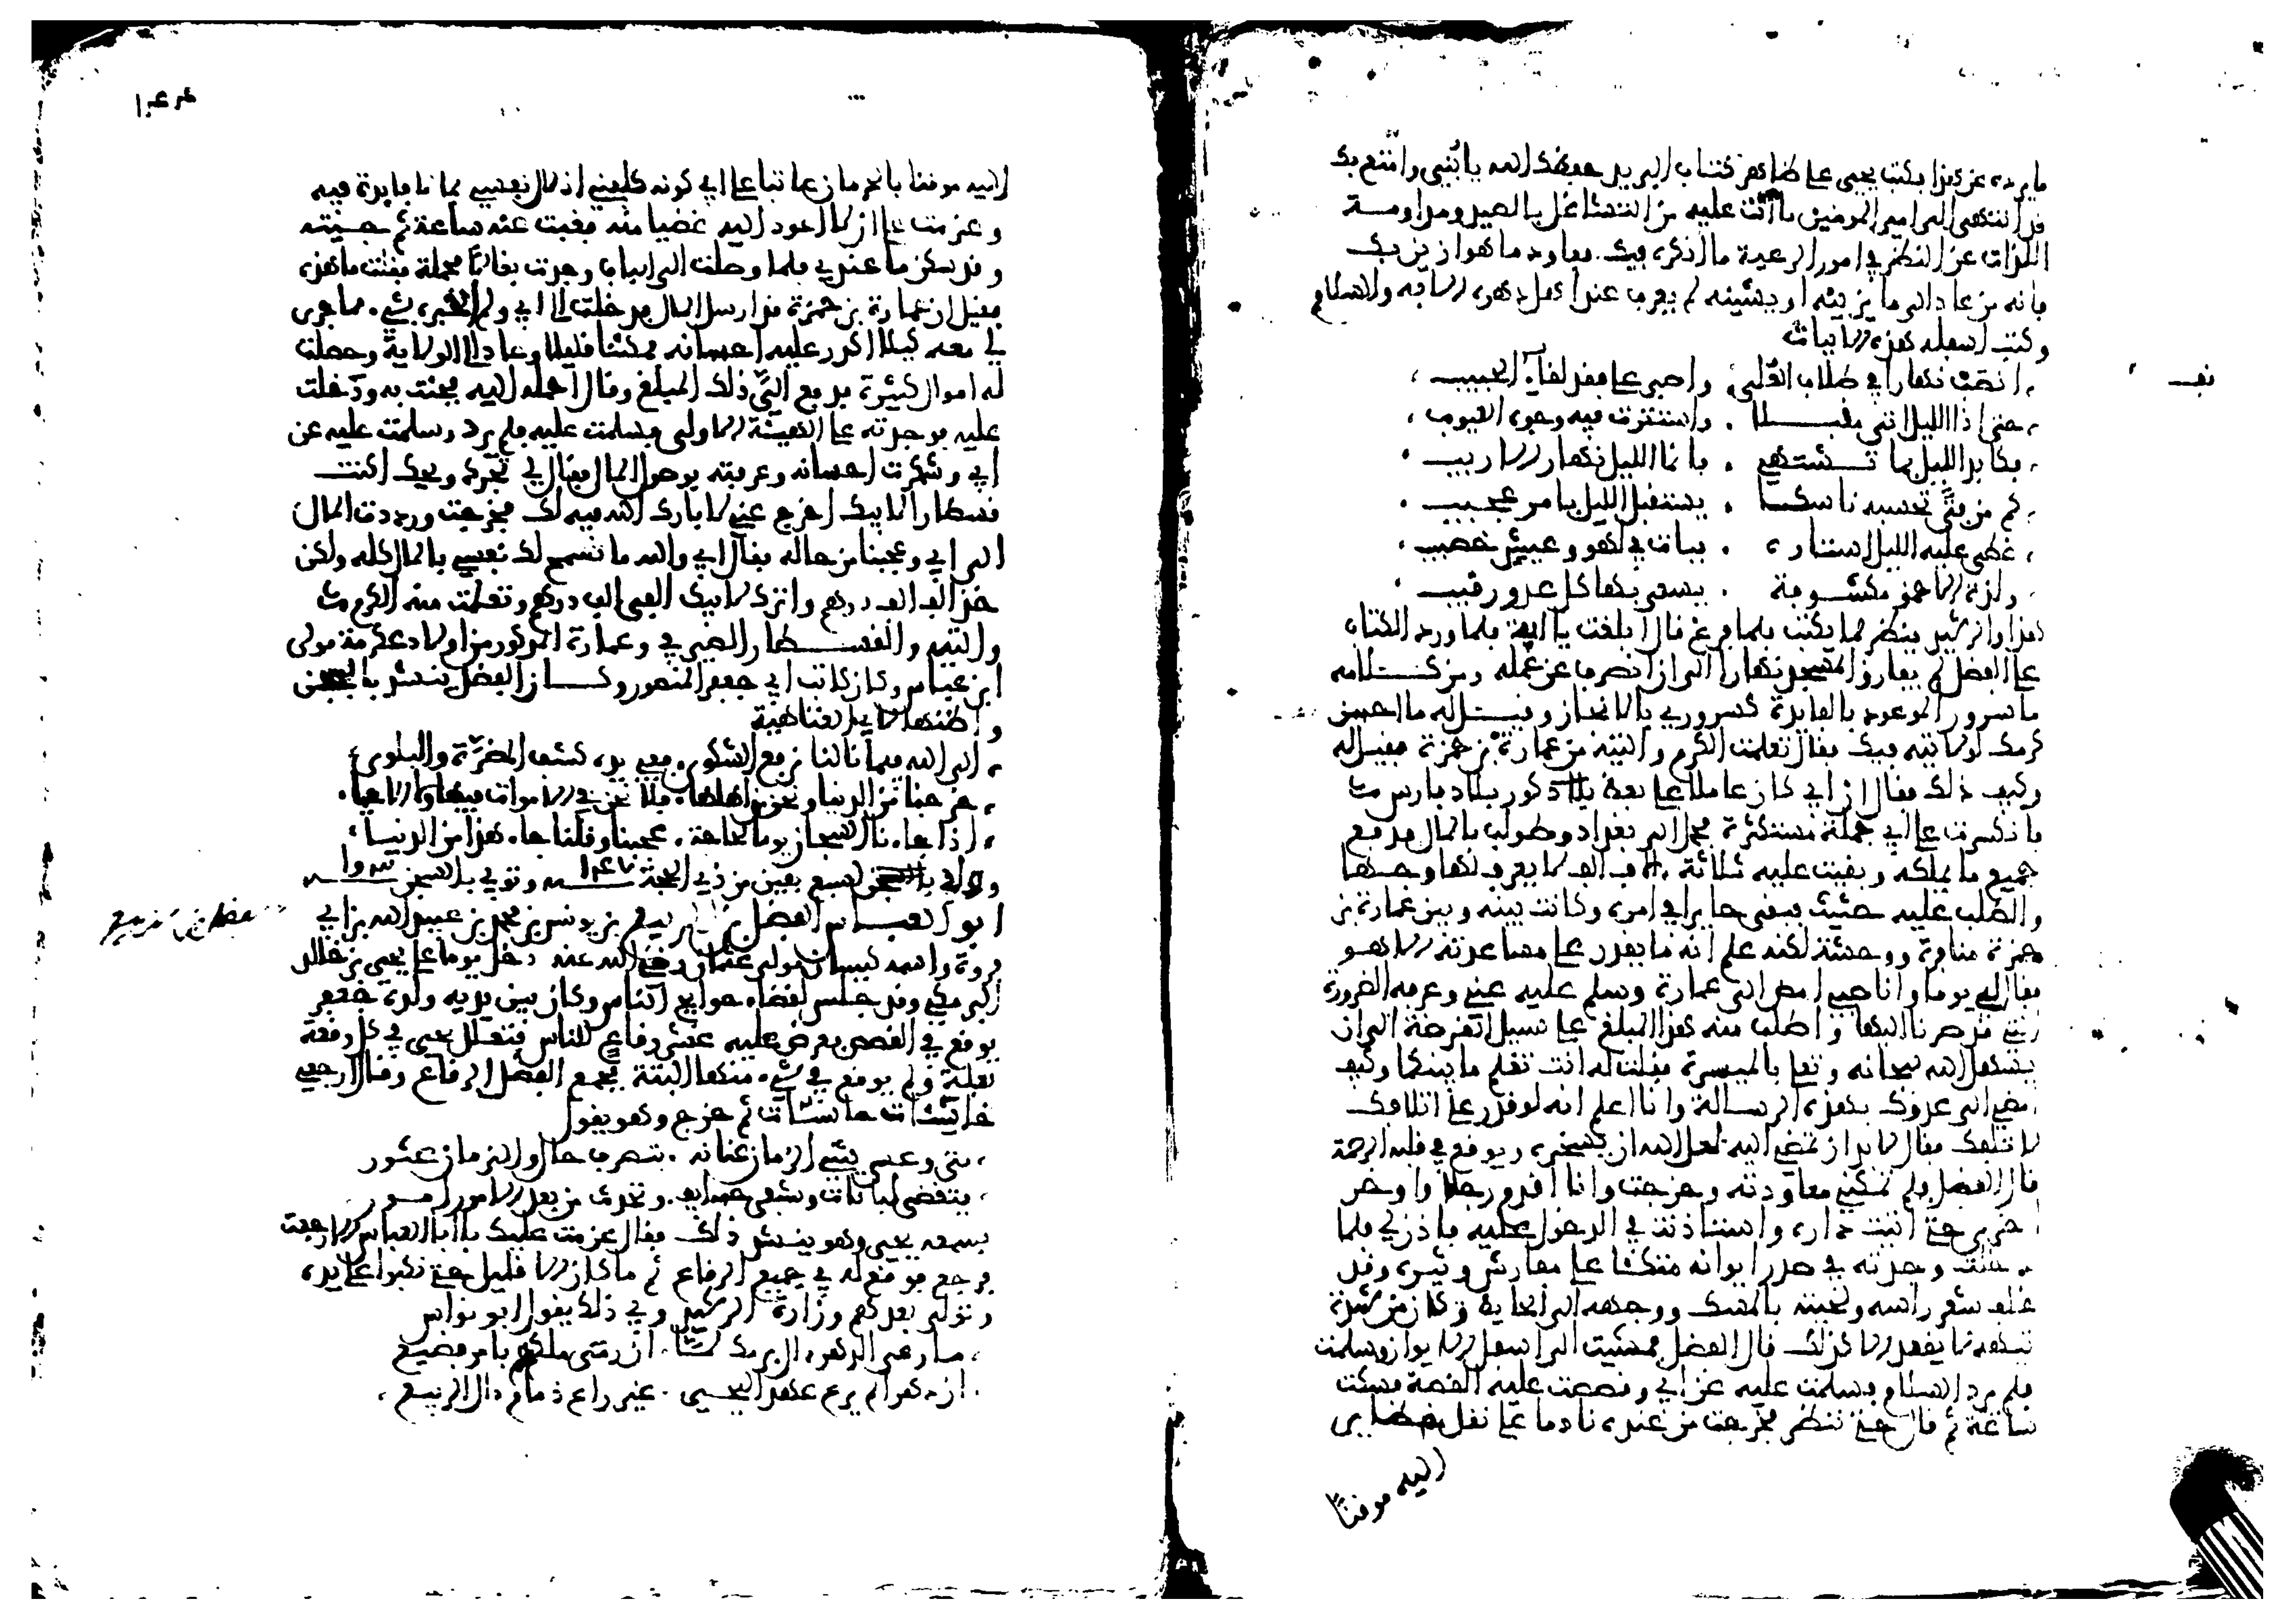 ما يرده عن هذا فكتب يحيى على ظاهر كتاب البريد حفظك الله يا بني وامتع بك
قد انتهى الى امير المومنين ما انت عليه من التشاغل بالصيد ومداومة
اللذات عن النظر في امور الرعية ما انكره فيك فعاود ما هو ازين بك
فانه من عاد الى ما يزينه او يشينه لم يعرف عند اهل دهره الا به والسلام
وكتب اسفله هذه الابيات
انصب نهارا في طلاب العلى واصبر على فقد لقاء الحبيب
حتى اذا الليل اتى مقبلا واستترت فيه وجوه العيوب
فكابد الليل بما تشتهي فانما الليل نهار الاريب
كم من فتى تحسبه ناسكا يستقبل الليل بامر عجيب
غطى عليه الليل استاره فبات في لهو وعيش خصيب
ولذة الاحمق مكشوفة يسعى بها كل عدو رقيب
هذا والرشيد ينظر لما يكتب فلما فرغ قال ابلغت يا ابة فلما ورد الكتاب
على الفضل لم يفارق المسجد نهارا الى ان انصرف عن عمله ومن كلامه
ما سرور الموعود بالفايدة كسروري بالانجاز وقيل له ما احسن
كرمك لولا تيه فيك فقال تعلمت الكرم والتيه من عمارة بن حمزة فقيل له
وكيف ذلك فقال ان ابي كان عاملا على بعض كور بلاد فارس
فانكسرت على ابي جملة مستكثرة فحمل الى بغداد وطولب بالمال فدفع
جميع ما يملكه وبقيت عليه ثلاثة الاف الف لا يعرف لها وجها
والطلب عليه حثيث فبقي حايرا في امره وكانت بينه وبين عمارة بن
حمزة منافرة ووحشة لكنه علم انه ما يقدر على مساعدته الا هو
فقال لي يوما وانا صبي امض الى عمارة وسلم عليه عني وعرفه الضرورة
التي قد صرنا اليها واطلب منه هذا المبلغ على سبيل القرضة الى ان
يسهل الله سبحانه وتعالى بالميسرة فقلت له انت تعلم ما بينكما وكيف
امضي الى عدوك بهذه الرسالة وانا اعلم انه لو قدر على اتلافك
لاتلفك فقال لا بد ان تمضي اليه لعل الله ان يسخره ويوقع في قلبه الرحمة
قال الفضل فلم يمكني معاودته وخرجت وانا اقدم رجلا واوخر
اخرى حتى اتيت داره واستاذنت في الدخول عليه فاذن لي فلما
دخلت وجدته في صدر ايوانه متكئا على مفارش وثيرة وقد
غلف شعر راسه ولحيته بالمسك ووجهه الى الحايط وكان من شدة
تيهه لا يقعد الا كذلك قال الفضل فمشيت الى اسفل الايوان وسلمت
فلم يرد السلام فسلمت عليه عن ابي وقصصت عليه القصة فسكت
ساعة ثم قال حتى ننظر فخرجت من عنده نادما على نقل خطاي
اليه موقنا
اليه موقنا بالحرمان عاتبا على ابي كونه كلفني اذلال نفسي بما لا فايدة فيه
وعزمت على ان لا اعود اليه غضبا منه فغبت عنه ساعة ثم جيته
وقد سكن ما عندي فلما وصلت الى الباب وجدت بغالا محملة فقلت ما هذه
فقيل ان عمارة بن حمزة قد ارسل المال فدخلت على ابي ولم اخبره بشيء مما جرى
لي معه كيلا اكدر عليه احسانه فمكثنا قليلا وعاد الى الولاية وحصلت
له اموال كثيرة فدفع الي ذلك المبلغ وقال احمله اليه فجئت به ودخلت
عليه فوجدته على الهيئة الاولى فسلمت عليه فلم يرد وسلمت عليه عن
ابي وشكرت احسانه وعرفته بوصول المال فقال لي بحرد ويحك اكنت
قسطارا لابيك اخرج عني لا بارك الله فيه لك فخرجت ورددت المال
الى ابي وعجبنا من حاله فقال ابي والله ما تسمح لك نفسي بالمال كله ولكن
خذ الف الف درهم واترك لابيك الفي الف درهم وتعلمت منه الكرم
والتيه والقسطار الصيرفي وعمارة المذكور من اولاد عكرمة مولى
ابن عباس وكان كاتب ابي جعفر المنصور وكان الفضل ينشد بالسجن
واظنها لابي العتاهية
الى الله فيما نالنا نرفع الشكوى ففي يده كشف المضرة والبلوى
خرجنا من الدنيا ونحن من اهلها فلا نحن في الاموات فيها ولا الاحيا
اذا جاءنا السجان يوما لحاجة عجبنا وقلنا جاء هذا من الدنيا
وولد لسبع بقين من ذي الحجة وتوفي بالسجن
ابو العباس الفضل بن الربيع بن يونس بن محمد بن عبد الله بن ابي
فروة واسمه كيسان مولى عثمان رضي الله عنه دخل يوما على يحيى بن خالد
البرمكي وقد جلس لقضاء حوايج الناس وكان بين يديه ولده جعفر
يوقع في القصص فعرض عليه عشر رقاع للناس فتعلل يحيى في كل رقعة
بعلة ولم يوقع في شيء منها البتة فجمع الفضل الرقاع وقال ارجعي
خايبات خاسئات ثم خرج وهو يقول
متى وعسى يثني الزمان عنانه بتصرف حال والزمان عثور
فتقضى لبانات وتشفى حسايف وتحدث من بعد الامور امور
فسمعه يحيى وهو ينشد ذلك فقال عزمت عليك يا ابا العباس الا رجعت
فرجع فوقع له في جميع الرقاع ثم ما كان الا قليل حتى نكبوا على يده
وتولى بعدهم وزارة الرشيد وفي ذلك يقول ابو نواس
ما رعى الدهر ال برمك لما ان رمى ملكهم بامر فضيع
ان دهرا لم يرع عهدا ليحيى غير راع ذمام ال الربيع